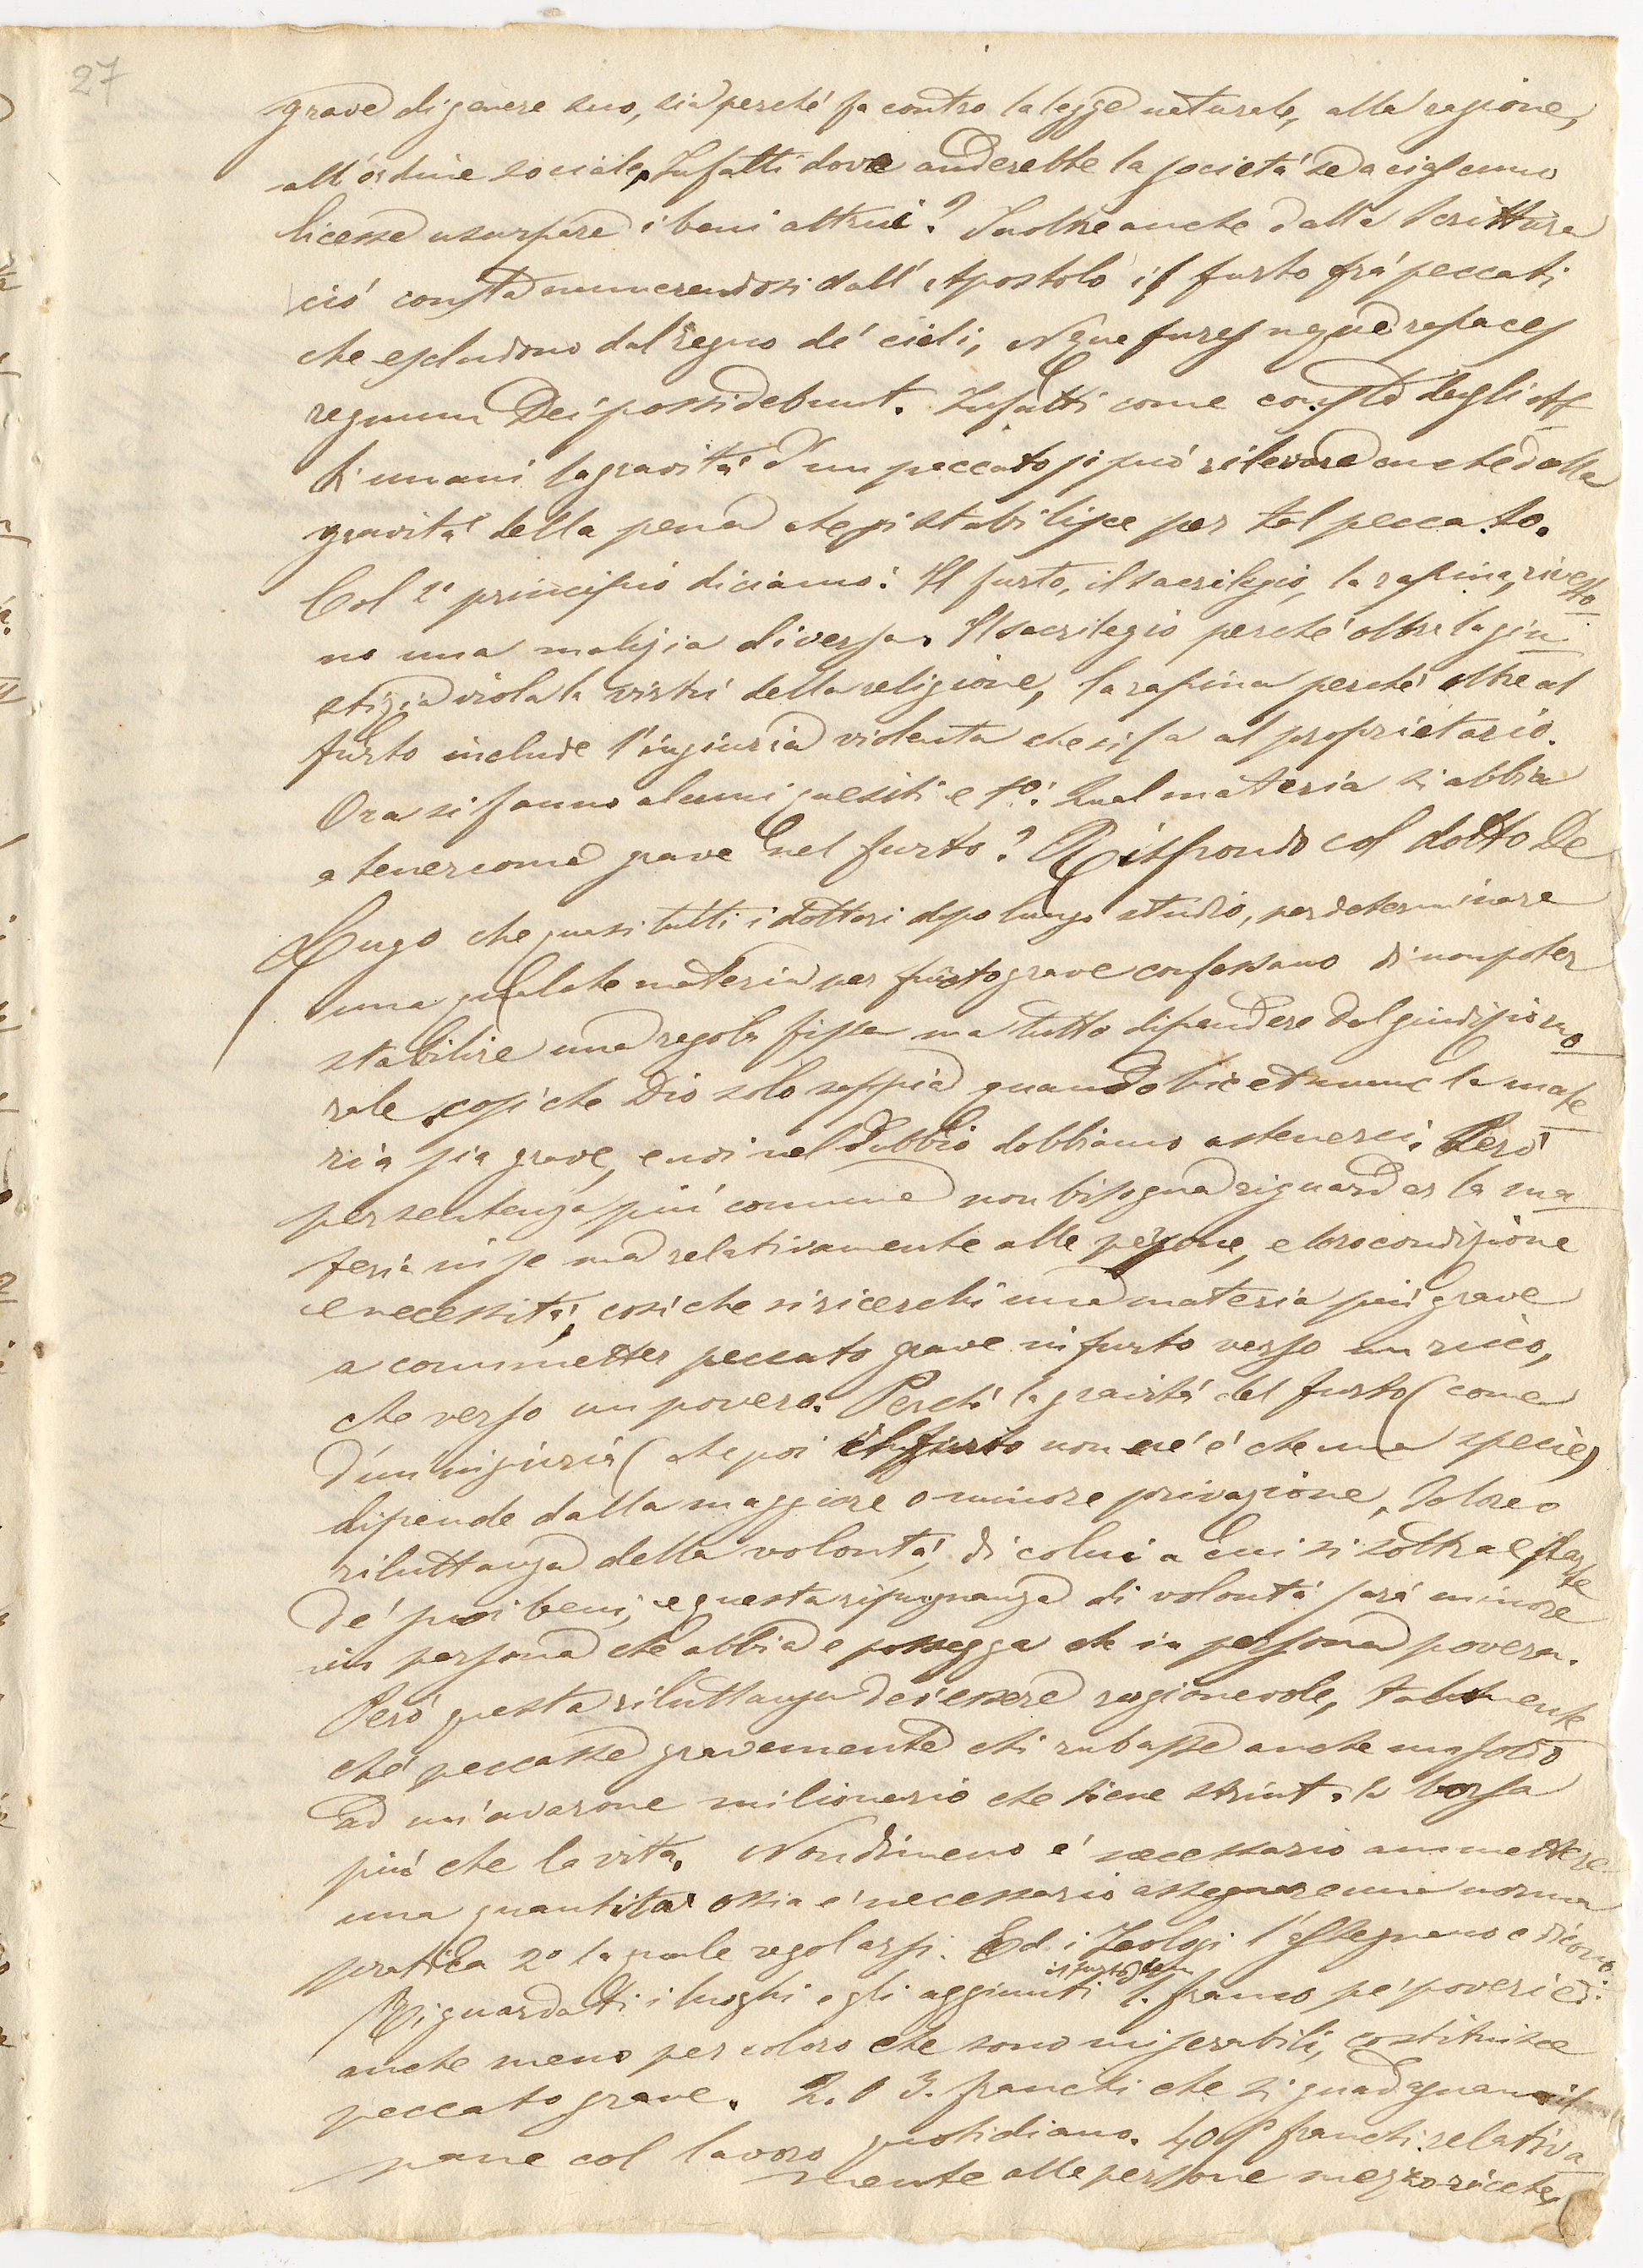 27
grave di genere suo, sia perché fa contro la legge naturale, alla ragione,
all'ordine sociale. Infatti dove anderebbe la società se a ciascuno
licesse usurpare i beni altrui? Inoltre anche dalla Scrittura
ciò consta numerandosi dall'Apostolo il furto fra' peccati
che escludono dal regno de' cieli, Neque fures neque rapaces
regnum Dei possidebunt. Infatti come consta degli At
ti umani la gravità d'un peccato si può rilevare anche dalla
gravità della pena che si stabilisce per tal peccato.
Col 2° principio diciamo: Il furto, il sacrilegio, la rapina, rivesto
no una malizia diversa. Il sacrilegio perché oltre la giu
stizia viola la virtù della religione, la rapina perché oltre al
furto include l'ingiuria violenta che si fa al proprietario.
Ora si fanno alcuni quesiti e 1°: Qual materia si abbia
a tener come grave nel furto? Rispondo col dotto De
Lugo che quasi tutti i dottori dopo lungo studio, per determinare
una qualche materia per furto grave confessano di non poter
stabilire una regola fissa ma tutto dipendere dal giudizio mo
rale, così che Dio solo sappia quando hic et nunc la mate
ria sia grave, e noi nel dubbio dobbiamo astenerci. Però
per sentenza più comune non bisogna riguardar la ma
teria in se ma relativamente alle persone, e loro condizione
e necessità, così che si ricerchi una materia più grave
a commetter peccato grave in furto verso un ricco,
che verso un povero. Perché la gravità del furto (come
d'un'ingiuria (che poi il furto non ne è che una specie)
dipende dalla maggiore o minore privazione, dolore o
riluttanza della volontà, di colui a cui si sottrae parte
de' suoi beni, e questa ripugnanza di volontà sarà minore
in persona che abbia e possegga che in persona povera.
Però questa riluttanza dev'essere ragionevole, talmente
che peccasse gravemente chi rubasse anche un soldo
ad un'avarone milionario che tiene strint. la borsa
più che la vita. Nondimeno è necessario ammettere
una quantità ossia è necessario assegnare una norma
pratica 2° la quale regolarsi. Ed i Teologi l'assegnano e dicono:
il furto di
Riguardati i luoghi e gli aggiunti 1. franco pe' poveri ed
anche meno per coloro che sono miserabili, costituisce
peccato grave. 2. o 3. franchi che si guadagnano il
pane col lavoro quotidiano. 4 o 5 franchi relativa
mente alle persone mezzo ricche,